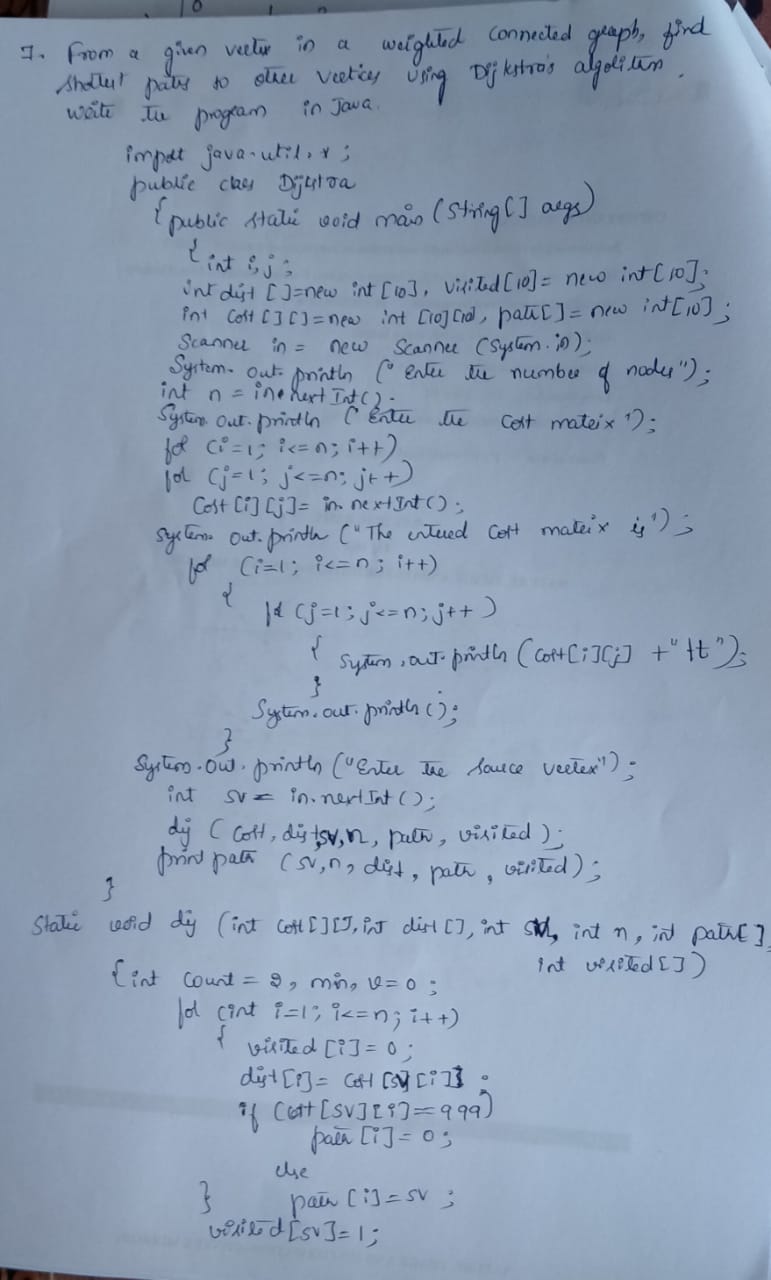 7. From a given vertex in a weighted connected graph, find
shortest paths to other vertices using Dijkstra's algorithm.
write the program in Java.
import java.util.*;
public class Dijkstra
{ public static void main (String[] args)
{ int i,j;
int dist []=new int [10], visited[10]= new int[10];
int cost [][]=new int [10][10], path[]= new int[10];
Scanner in = new Scanner (System.in);
System.out.println ("Enter the number of nodes");
int n = in.nextInt();
System.out.println ("Enter the cost matrix");
for (i=1; i<=n; i++)
for (j=1; j<=n; j++)
Cost[i][j]= in.nextInt();
System.out.println ("The entered cost matrix is");
for (i=1; i<=n; i++)
{
for (j=1; j<=n; j++)
{ System.out.println (cost[i][j] +"\t");
}
System.out.println();
}
System.out.println ("Enter the source vertex");
int sv= in.nextInt();
dij (cost, dist,sv,n, path, visited);
print path (sv,n, dist, path, visited);
}
Static void dij (int cost[][], int dist[], int sv, int n, int path[],
int visited[])
{int count = 2, min, v=0;
for (int i=1; i<=n; i++)
{ visited [i]=0;
dist[i]= cost [sv][i];
if (cost[sv][i]==999)
path [i]=0;
else
} path [i]=sv;
visited[sv]=1;